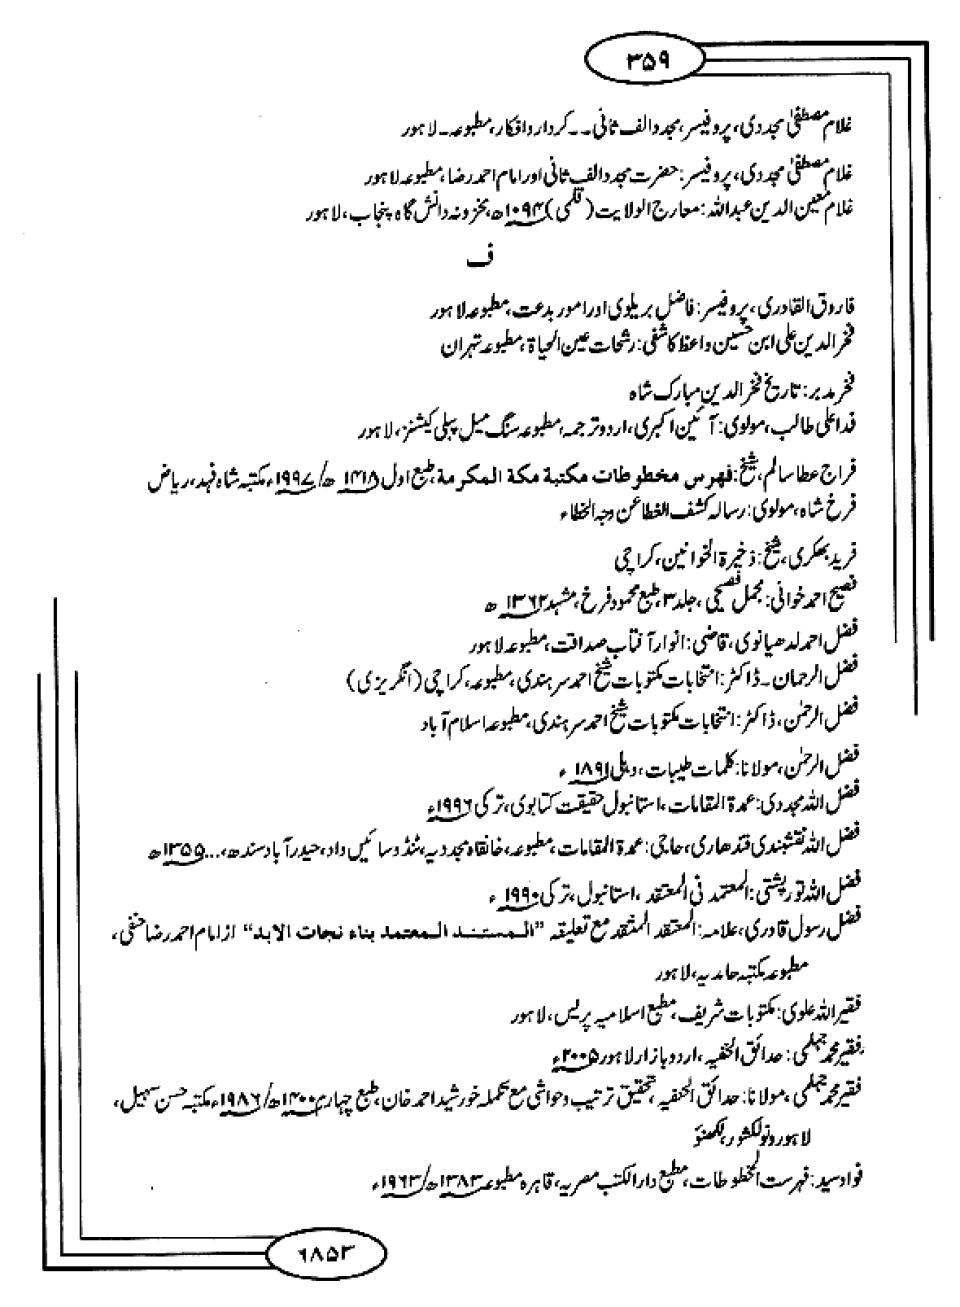 ۳۵۹
غلام مصطفیٰ مجددی، پروفیسر، مجدد الف ثانی۔۔ کردار و افکار، مطبوعہ۔ لاہور
غلام مصطفیٰ مجددی، پروفیسر: حضرت مجدد الف ثانی اور امام احمد رضا، مطبوعہ لاہور
غلام معین الدین عبداللہ: معارج الولایت (قلمی) ۱۰۹۴ھ، مخزونہ دانش گاہ پنجاب، لاہور
ف
فاروق القادری، پروفیسر: فاضل بریلوی اور امور بدعت، مطبوعہ لاہور
فخر الدین علی ابن حسین واعظ کاشفی: رشحات عین الحیاۃ، مطبوعہ تہران
فخر مدبر: تاریخ فخر الدین مبارک شاہ
فدا علی طالب، مولوی: آئین اکبری، اردو ترجمہ، مطبوعہ سنگ میل پبلی کیشنز، لاہور
فراج عطا سالم، شیخ: فہرس مخطوطات مکتبة مکة المکرمة، طبع اول ۱۴۱۸ھ/۱۹۹۷ء مکتبہ شاہ فہد، ریاض
فرخ شاہ، مولوی: رسالہ کشف الغطا عن وجہ الخطاء
فرید بھکری، شیخ: ذخیرۃ الخوانین، کراچی
فصیح احمد خوافی: مجمل فصیحی، جلد ۳، طبع محمود فرخ، مشہد ۱۳۶۲ھ
فضل احمد لدھیانوی، قاضی: انوار آفتاب صداقت، مطبوعہ لاہور
فضل الرحمان۔ ڈاکٹر: انتخابات مکتوبات شیخ احمد سرہندی، مطبوعہ، کراچی (انگریزی)
فضل الرحمٰن، ڈاکٹر: انتخابات مکتوبات شیخ احمد سرہندی، مطبوعہ اسلام آباد
فضل الرحمٰن، مولانا: کلمات طیبات، دہلی ۱۸۹۱ء
فضل اللہ مجددی: عمدۃ المقامات، استانبول حقیقت کتابوی، ترکی ۱۹۹۶ء
فضل اللہ نقشبندی قندھاری، حاجی: عمدۃ المقامات، مطبوعہ، خانقاہ مجددیہ، ٹنڈو سائیں داد، حیدر آباد سندھ، ... ۱۳۵۵ھ
فضل اللہ تورپشتی: المعتمد فی المعتقد، استانبول، ترکی ۱۹۹۰ء
فضل رسول قادری، علامہ: المعتقد المنتقد مع تعلیقہ "المستند المعتمد بناء نجات الابد" از امام احمد رضا حنفی،
مطبوعہ مکتبہ حامدیہ، لاہور
فقیر اللہ علوی: مکتوبات شریف، مطبع اسلامیہ پریس، لاہور
فقیر محمد جہلمی: حدائق الحنفیہ، اردو بازار لاہور ۲۰۰۵ء
فقیر محمد جہلمی، مولانا: حدائق الحنفیہ، تحقیق ترتیب و حواشی مع تکملہ خورشید احمد خان، طبع چہارم ۱۴۰۰ھ/۱۹۸۶ء مکتبہ حسن سہیل،
لاہور و نولکشور، لکھنؤ
فواد سید: فہرست المخطوطات، مطبع دار الکتب مصریہ، قاہرہ مطبوعہ ۱۳۸۳ھ/۱۹۶۳ء
۶۸۵۳